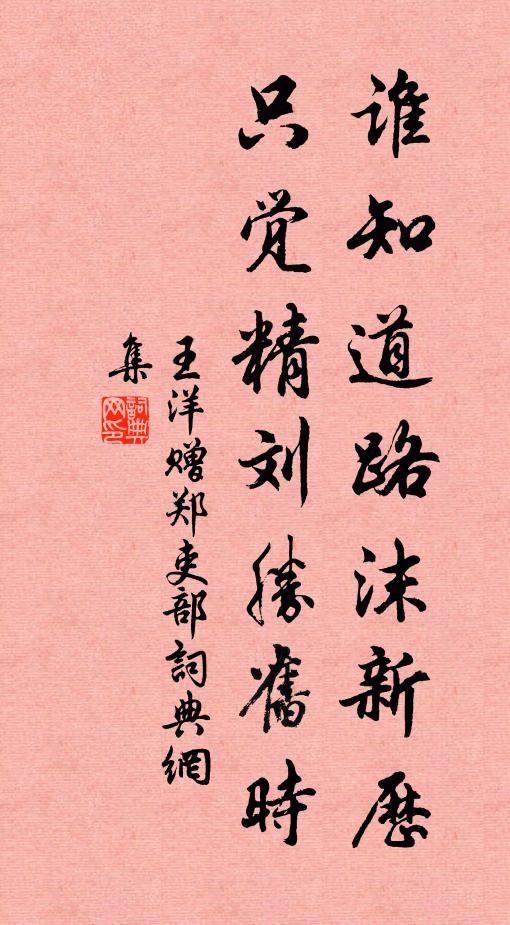 谁知道路沫新历
只觉精刘胜旧时
王洋赠郑吏部词典網
集
詞典网印